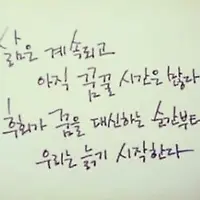 삶은 계속되고
아직 꿈꿀 시간은 많다
후회가 꿈을 대신하는 순간부터
우리는 늙기 시작한다